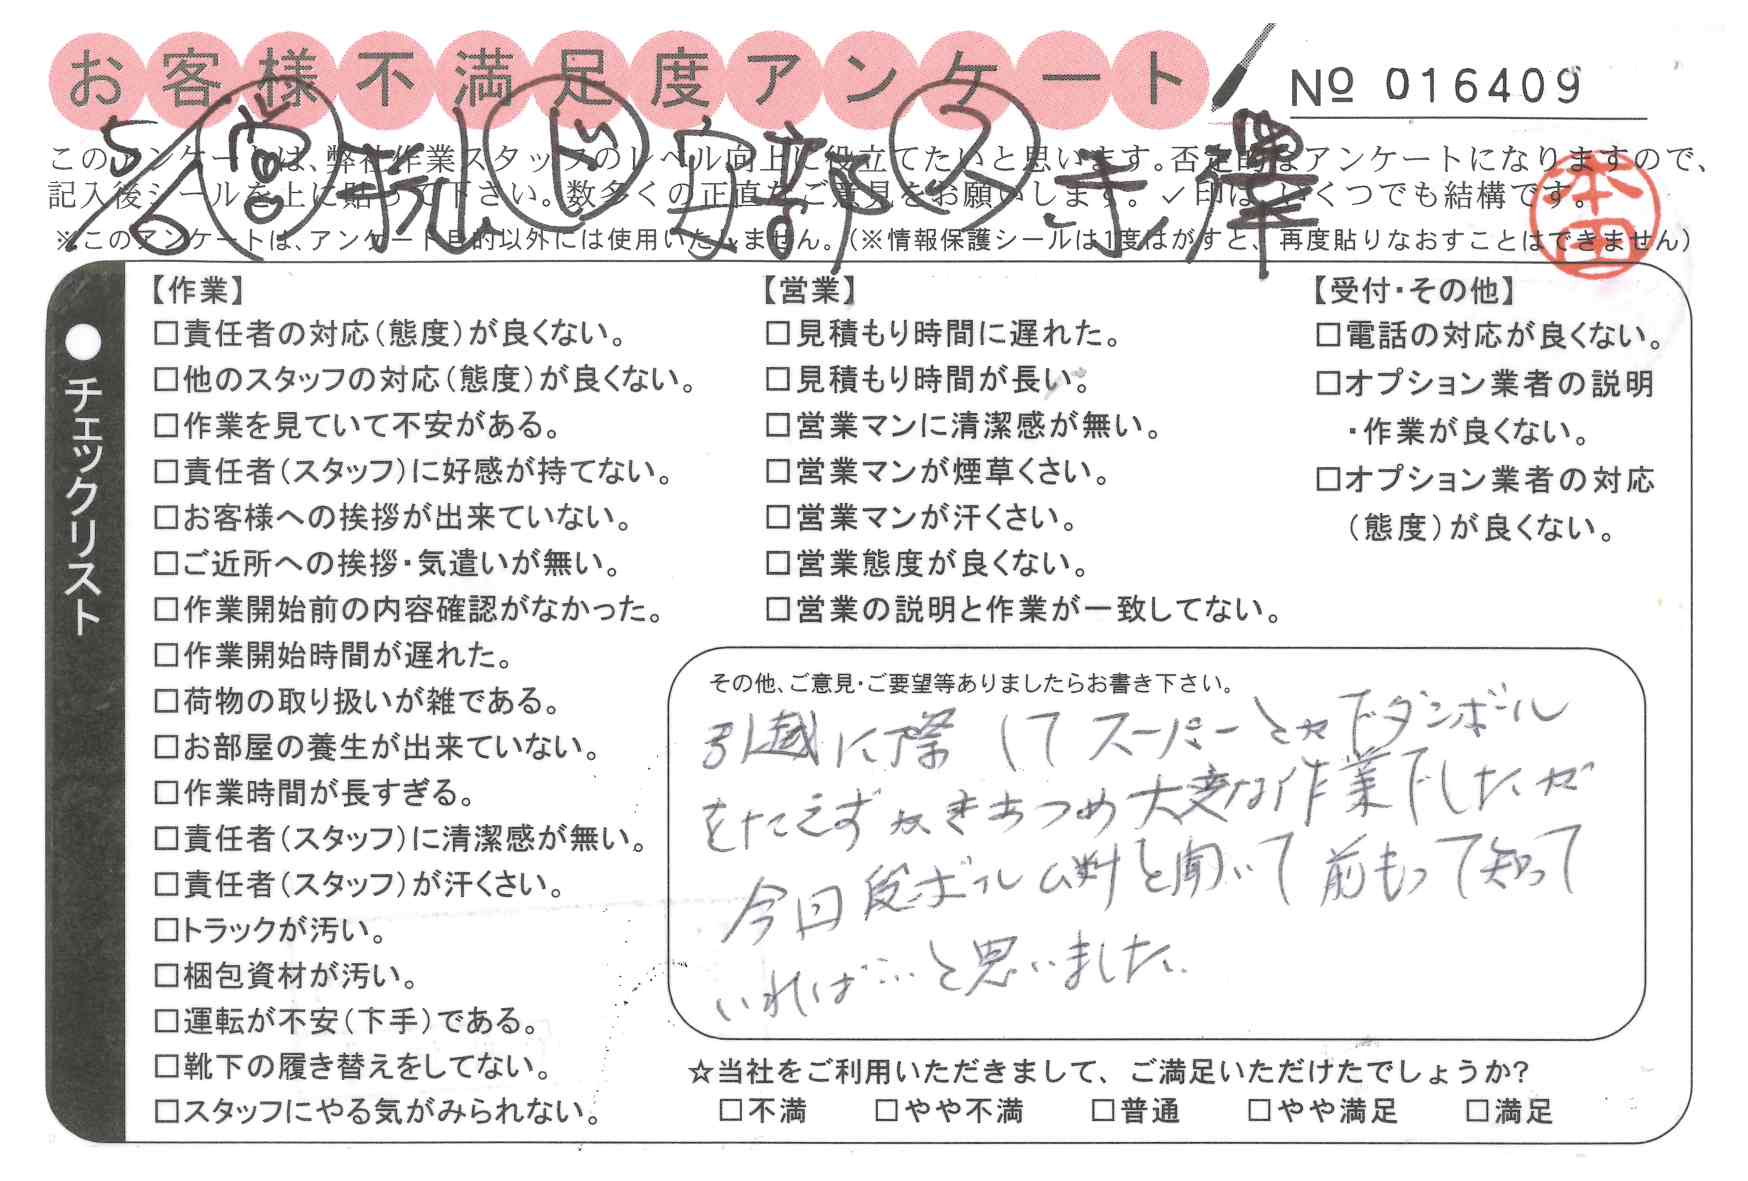 お客様不満足度アンケート
No 016409
5/6 営 荒 ド 安部 ス 寺澤
このアンケートは、弊社作業スタッフのレベル向上に役立てたいと思います。否定的なアンケートになりますので、
記入後シールを上に貼って下さい。数多くの正直なご意見をお願いします。✓印は、いくつでも結構です。
本田
※このアンケートは、アンケート目的以外には使用いたしません。(※情報保護シールは1度はがすと、再度貼りなおすことはできません)
●チェックリスト
【作業】
□責任者の対応(態度)が良くない。
□他のスタッフの対応(態度)が良くない。
□作業を見ていて不安がある。
□責任者(スタッフ)に好感が持てない。
□お客様への挨拶が出来ていない。
□ご近所への挨拶・気遣いが無い。
□作業開始前の内容確認がなかった。
□作業開始時間が遅れた。
□荷物の取り扱いが雑である。
□お部屋の養生が出来ていない。
□作業時間が長すぎる。
□責任者(スタッフ)に清潔感が無い。
□責任者(スタッフ)が汗くさい。
□トラックが汚い。
□梱包資材が汚い。
□運転が不安(下手)である。
□靴下の履き替えをしてない。
□スタッフにやる気がみられない。
【営業】
□見積もり時間に遅れた。
□見積もり時間が長い。
□営業マンに清潔感が無い。
□営業マンが煙草くさい。
□営業マンが汗くさい。
□営業態度が良くない。
□営業の説明と作業が一致してない。
【受付・その他】
□電話の対応が良くない。
□オプション業者の説明
・作業が良くない。
□オプション業者の対応
(態度)が良くない。
その他、ご意見・ご要望等ありましたらお書き下さい。
引越に際してスーパーとかでダンボール
をたえずかきあつめ大変な作業でしたが
今回段ボール無料と聞いて前もって知って
いればいいと思いました。
☆当社をご利用いただきまして、ご満足いただけたでしょうか?
□不満 □やや不満 □普通 □やや満足 □満足